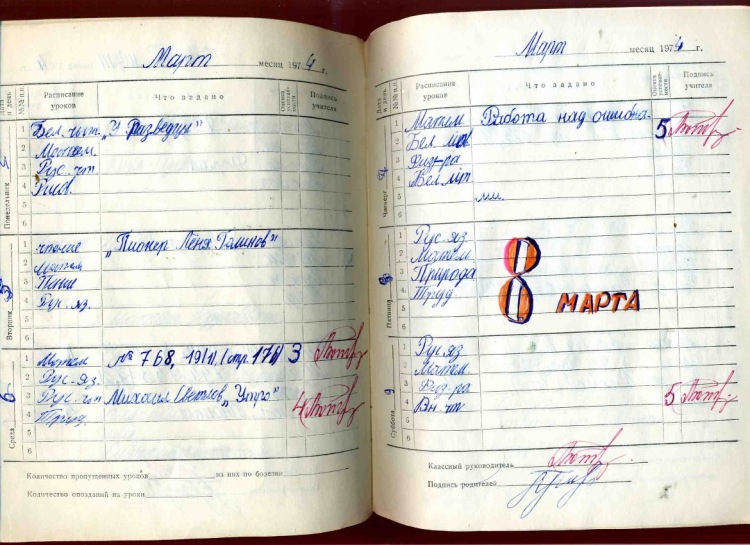 Март месяц 1974 г.
Дата и день
№№ п.п.
Расписание уроков
Что задано
Оценка успеваемости
Подпись учителя
Понедельник
1 Бел. чыт. „У разведцы"
2 Матем.
3 Рус. чт.
4
5
6
Вторник 5
1 чтение „Пионер Лёня Голиков"
2 Матем
3 Пение
4 Рус. яз.
5
6
Среда 6
1 Матем № 768, 19/1/, (стр. 176) 3
2 Рус. яз.
3 Рус. чт Михаил Светлов „Утро" 4
4 Труд.
5
6
Количество пропущенных уроков из них по болезни
Количество опозданий на уроки
Март месяц 1974 г.
Дата и день
№№ п.п.
Расписание уроков
Что задано
Оценка успеваемости
Подпись учителя
Четверг
1 Матем Работа над ошибка 5
2 Бел
3 Физ-ра
4 Бел літ
5
6
Пятница 8
1 Рус. яз.
2 Матем
3 Природа
4 Труд
5
6
8 МАРТА
Суббота 9
1 Рус яз
2 Матем
3 Физ-ра
4 Вн. чт 5
5
6
Классный руководитель
Подпись родителей